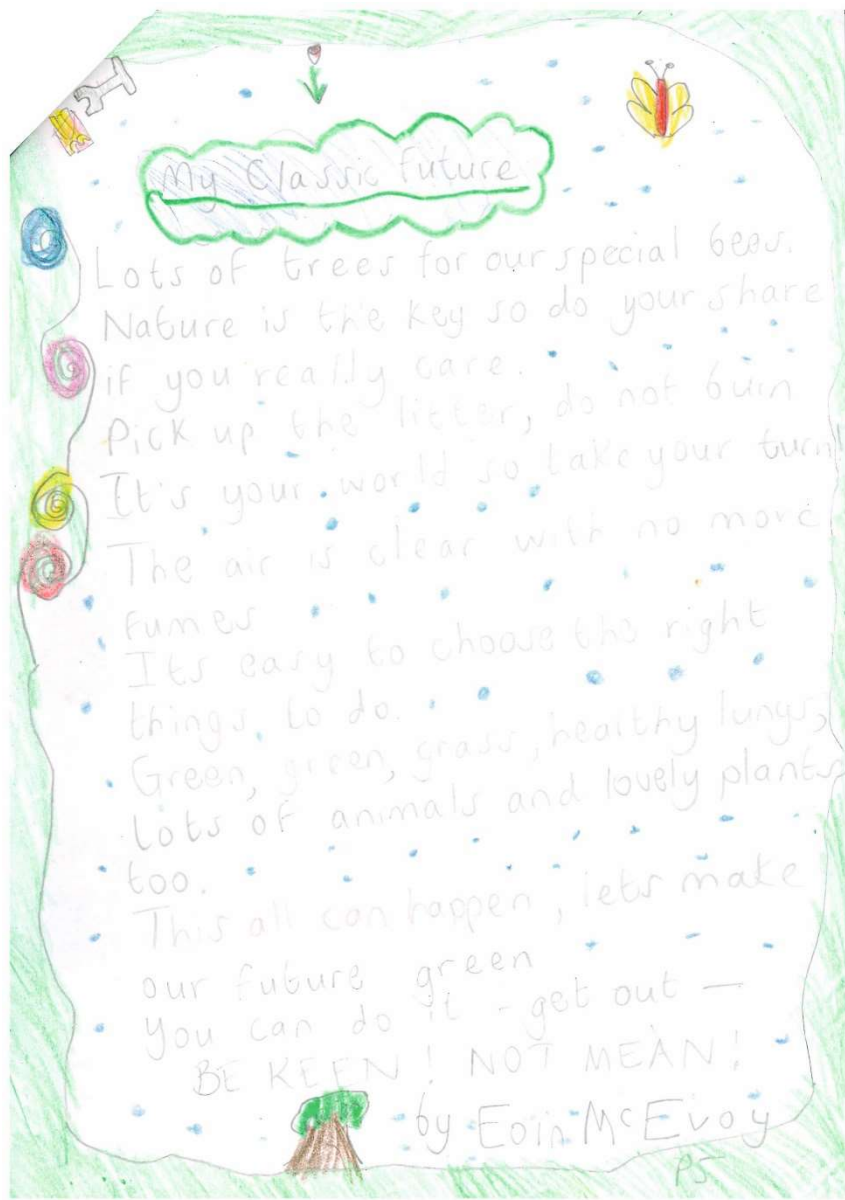 My Classic Future
Lots of trees for our special bees.
Nature is the key so do your share
if you really care.
Pick up the litter, do not burn
It's your world so take your turn!
The air is clear with no more
fumes
Its easy to choose the right
things to do.
Green, green, grass, healthy lungs,
Lots of animals and lovely plants
too.
This all can happen, lets make
our future green
You can do it - get out —
BE KEEN! NOT MEAN!
by Eoin McEvoy
P5